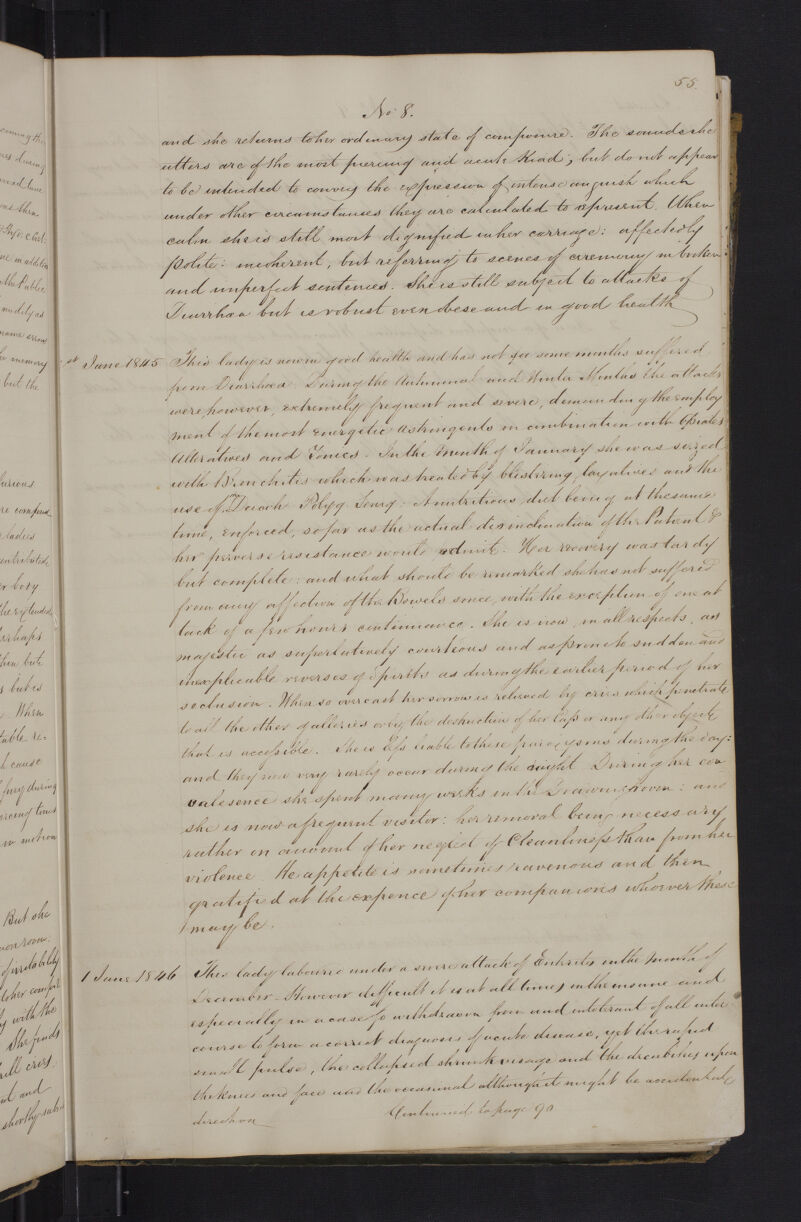 55.
No 8.
and she returns to her ordinary state of composure. The sounds she
utters are of the most piercing and acute kind; but do not appear
to be intended to convey the expression of intense anguish which
under other circumstances they are calculated to represent. When
calm she is still most dignified in her carriage: affectedly
polite: incoherent, but referring to scenes of ceremony in broken
and imperfect sentences. She is still subject to attacks of
Diarrhœa but is robust even obese and in good health
st June 1845 This lady is now in good health and has not for some months suffered
from Diarrhœa. During the Autumnal and Winter Months the attacks
were however, extremely frequent and severe, demanding the employ
ment of the most energetic astringents in combination with Opiates
Alteratives and Tonics. In the Month of January she was seized
with Bronchitis which was treated by blistering, laxatives and the
use of Decoch Polyg. Seneg: A nutritious diet being at the same
time, enforced, so far as the actual disinclination of the Patient &
her perverse resistance would admit. Her recovery was tardy
but complete: and what should be remarked she has not suffered
from any affection of the Bowels since, with the exception of one at
tack of a few hours continuance. She is now, in all respects, as
majestic as superlatively courteous and as prone to sudden and
inexplicable reverses of Spirits as during the earlier period of her
seclusion. When so overcast her sorrow is relieved by cries which penetrate
to all the other galleries or by the destruction of her Caps or any other objects
that is accessible. She is less liable to these paroxysms during the day:
and they now very rarely occur during the night. During her con
valesence she spent many weeks in the Drawingroom: and
she is now a frequent visitor: her removal being necessary
rather on account of her neglect of Cleanliness than from her
violence. He appetite is sometimes ravenous and then
gratified at the expence of her companions whoever these
may be.
1 June 1846 This lady laboured under a severe attack of Enteritis in the Month of
December. However difficult it is at all times in the insane and
especially in a case so withdrawn from and intolerant of all inter
course to form a correct diagnosis of acute disease, yet the rapid
small pulse, the collapsed shrunk visage and the decubitus upon
the knees and face and the occasional although it might be accidental
direction
Continued to page 90